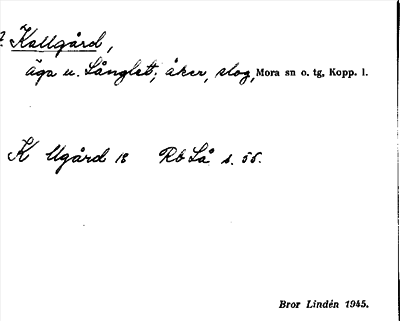 ? Kallgård,
äga u. Långlet; åker, slog, Mora sn o. tg, Kopp. l.
K llgård 18 Rb Lå s. 55.
Bror Lindén 1945.